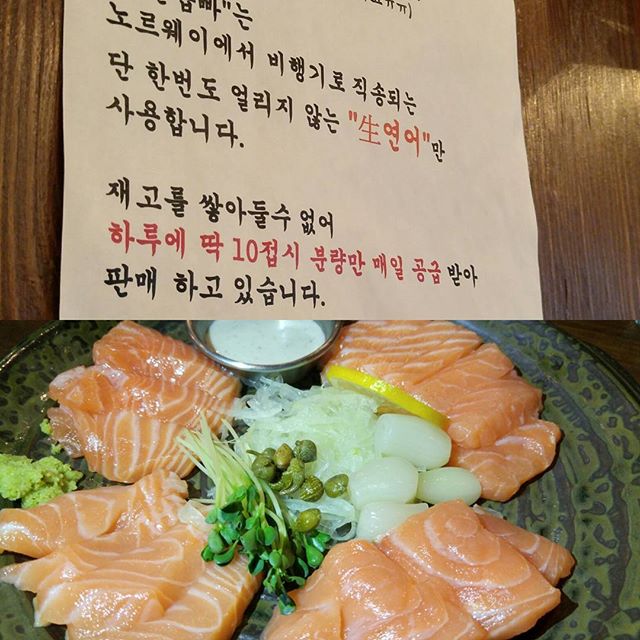 노르웨이에서 비행기로 직송되는
단 한번도 얼리지 않는 "生연어"만
사용합니다.
재고를 쌓아둘수 없어
하루에 딱 10접시 분량만 매일 공급 받아
판매 하고 있습니다.